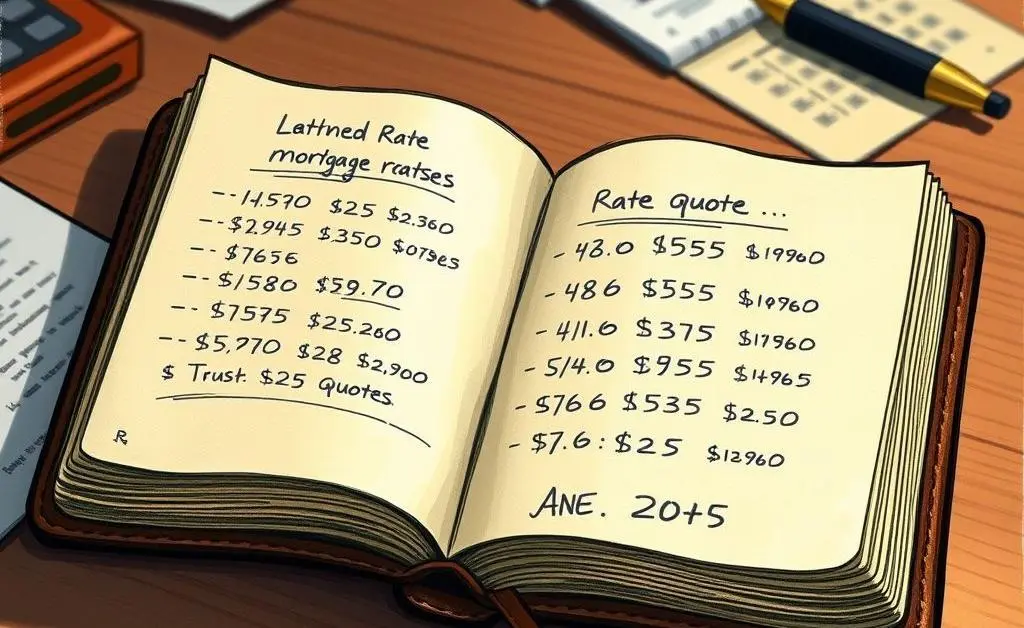 Lattned Rate
mortgage rcatses
--14.570 $25 $2.360
--$2945 $.350 $07ses
--$7656
--$1580 $59.70
--$7575 $25.260
--$5,770 $28 $2,900
$ Trust. $25 Quotes
R
Rate quote ...
- 43.0 $555 $19960
- 486 $555 $19960
- 411.0 $375 $17960
- 5/4.0 $955 $14965
- $766 $535 $2.50
- $7.6: $25 $12960
ANE. 20+5